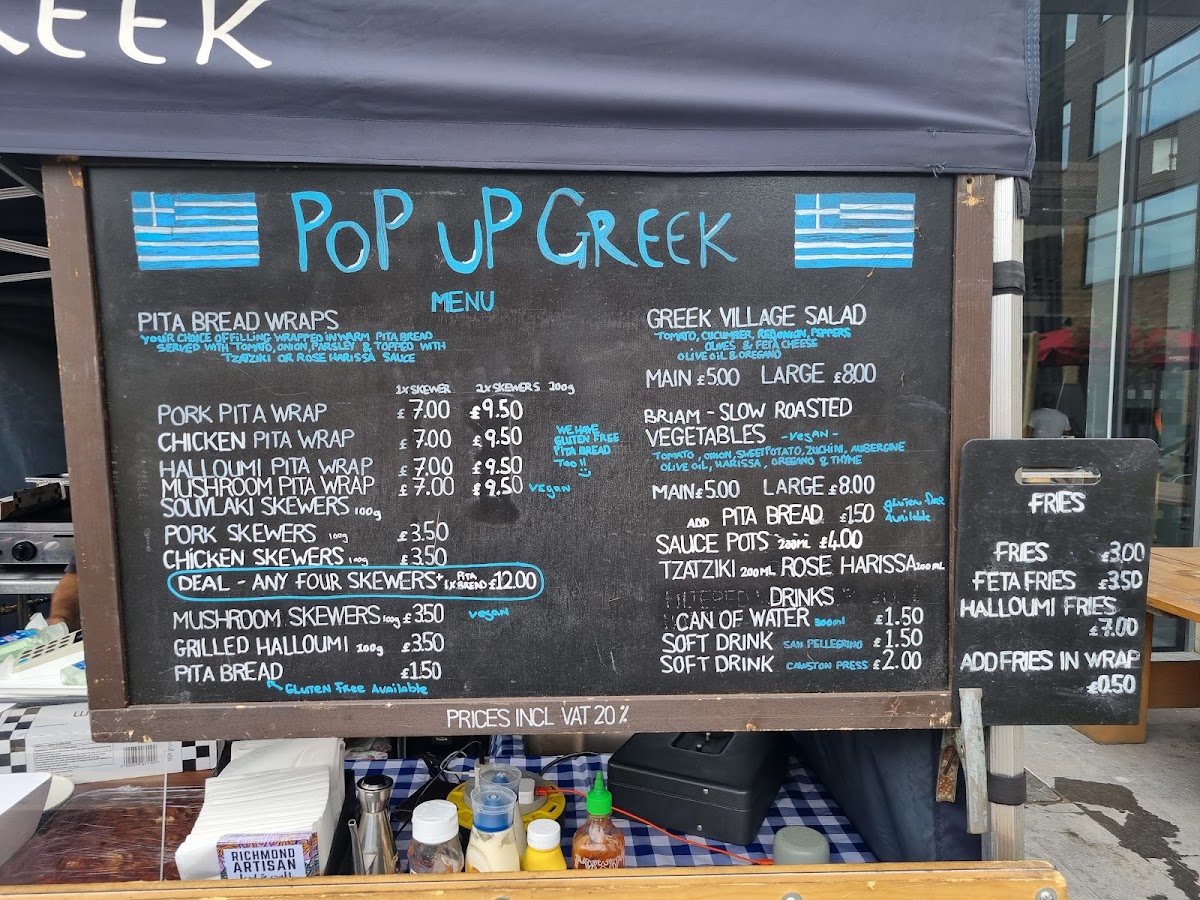 REEK
POP UP GREEK
MENU
PITA BREAD WRAPS
YOUR CHOICE OF FILLING WRAPPED IN WARM PITA BREAD
SERVED WITH TOMATO, ONION, PARSLEY & TOPPED WITH
TZATZIKI OR ROSE HARISSA SAUCE
1X SKEWER 2X SKEWERS 200g
PORK PITA WRAP £7.00 £9.50
CHICKEN PITA WRAP £7.00 £9.50
HALLOUMI PITA WRAP £7.00 £9.50
MUSHROOM PITA WRAP £7.00 £9.50 VEGAN
WE HAVE
GLUTEN FREE
PITA BREAD
TOO !!
SOUVLAKI SKEWERS 100g
PORK SKEWERS 100g £3.50
CHICKEN SKEWERS 100g £3.50
DEAL - ANY FOUR SKEWERS + 1X PITA BREAD £12.00
MUSHROOM SKEWERS 100g £3.50 VEGAN
GRILLED HALLOUMI 100g £3.50
PITA BREAD £1.50
GLUTEN FREE AVAILABLE
GREEK VILLAGE SALAD
TOMATO, CUCUMBER, RED ONION, PEPPERS
OLIVES & FETA CHEESE
OLIVE OIL & OREGANO
MAIN £5.00 LARGE £8.00
BRIAM - SLOW ROASTED
VEGETABLES - VEGAN -
TOMATO, ONION, SWEET POTATO, ZUCHINI, AUBERGINE
OLIVE OIL, HARISSA, OREGANO & THYME
MAIN £5.00 LARGE £8.00
ADD PITA BREAD £1.50 gluten free Available
SAUCE POTS 200ml £4.00
TZATZIKI 200ML ROSE HARISSA 200ML
DRINKS
CAN OF WATER 300ml £1.50
SOFT DRINK SAN PELLEGRINO £1.50
SOFT DRINK CAWSTON PRESS £2.00
PRICES INCL VAT 20%
FRIES
FRIES £3.00
FETA FRIES £3.50
HALLOUMI FRIES
£7.00
ADD FRIES IN WRAP
£0.50
RICHMOND
ARTISAN